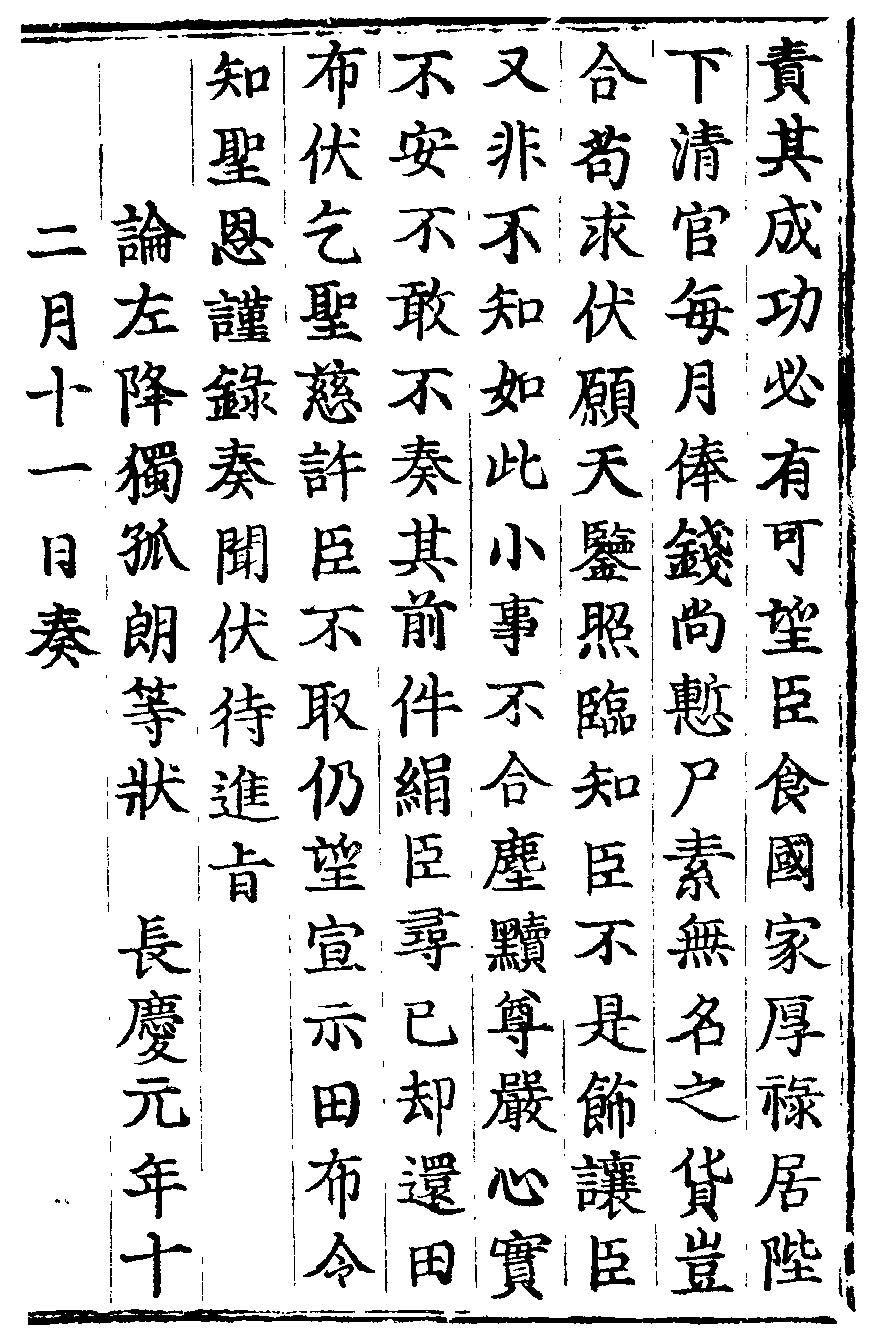 責其成功必有可望臣食國家厚祿居陛
下清官每月俸錢尚慙尸素無名之貨豈
合苟求伏願天鑒照臨知臣不是飾讓臣
又非不知如此小事不合塵黷尊嚴心實
不安不敢不奏其前件絹臣尋已却還田
布伏乞聖慈許臣不取仍望宣示田布令
知聖恩謹錄奏聞伏待進旨
論左降獨孤朗等狀　長慶元年十
二月十一日奏